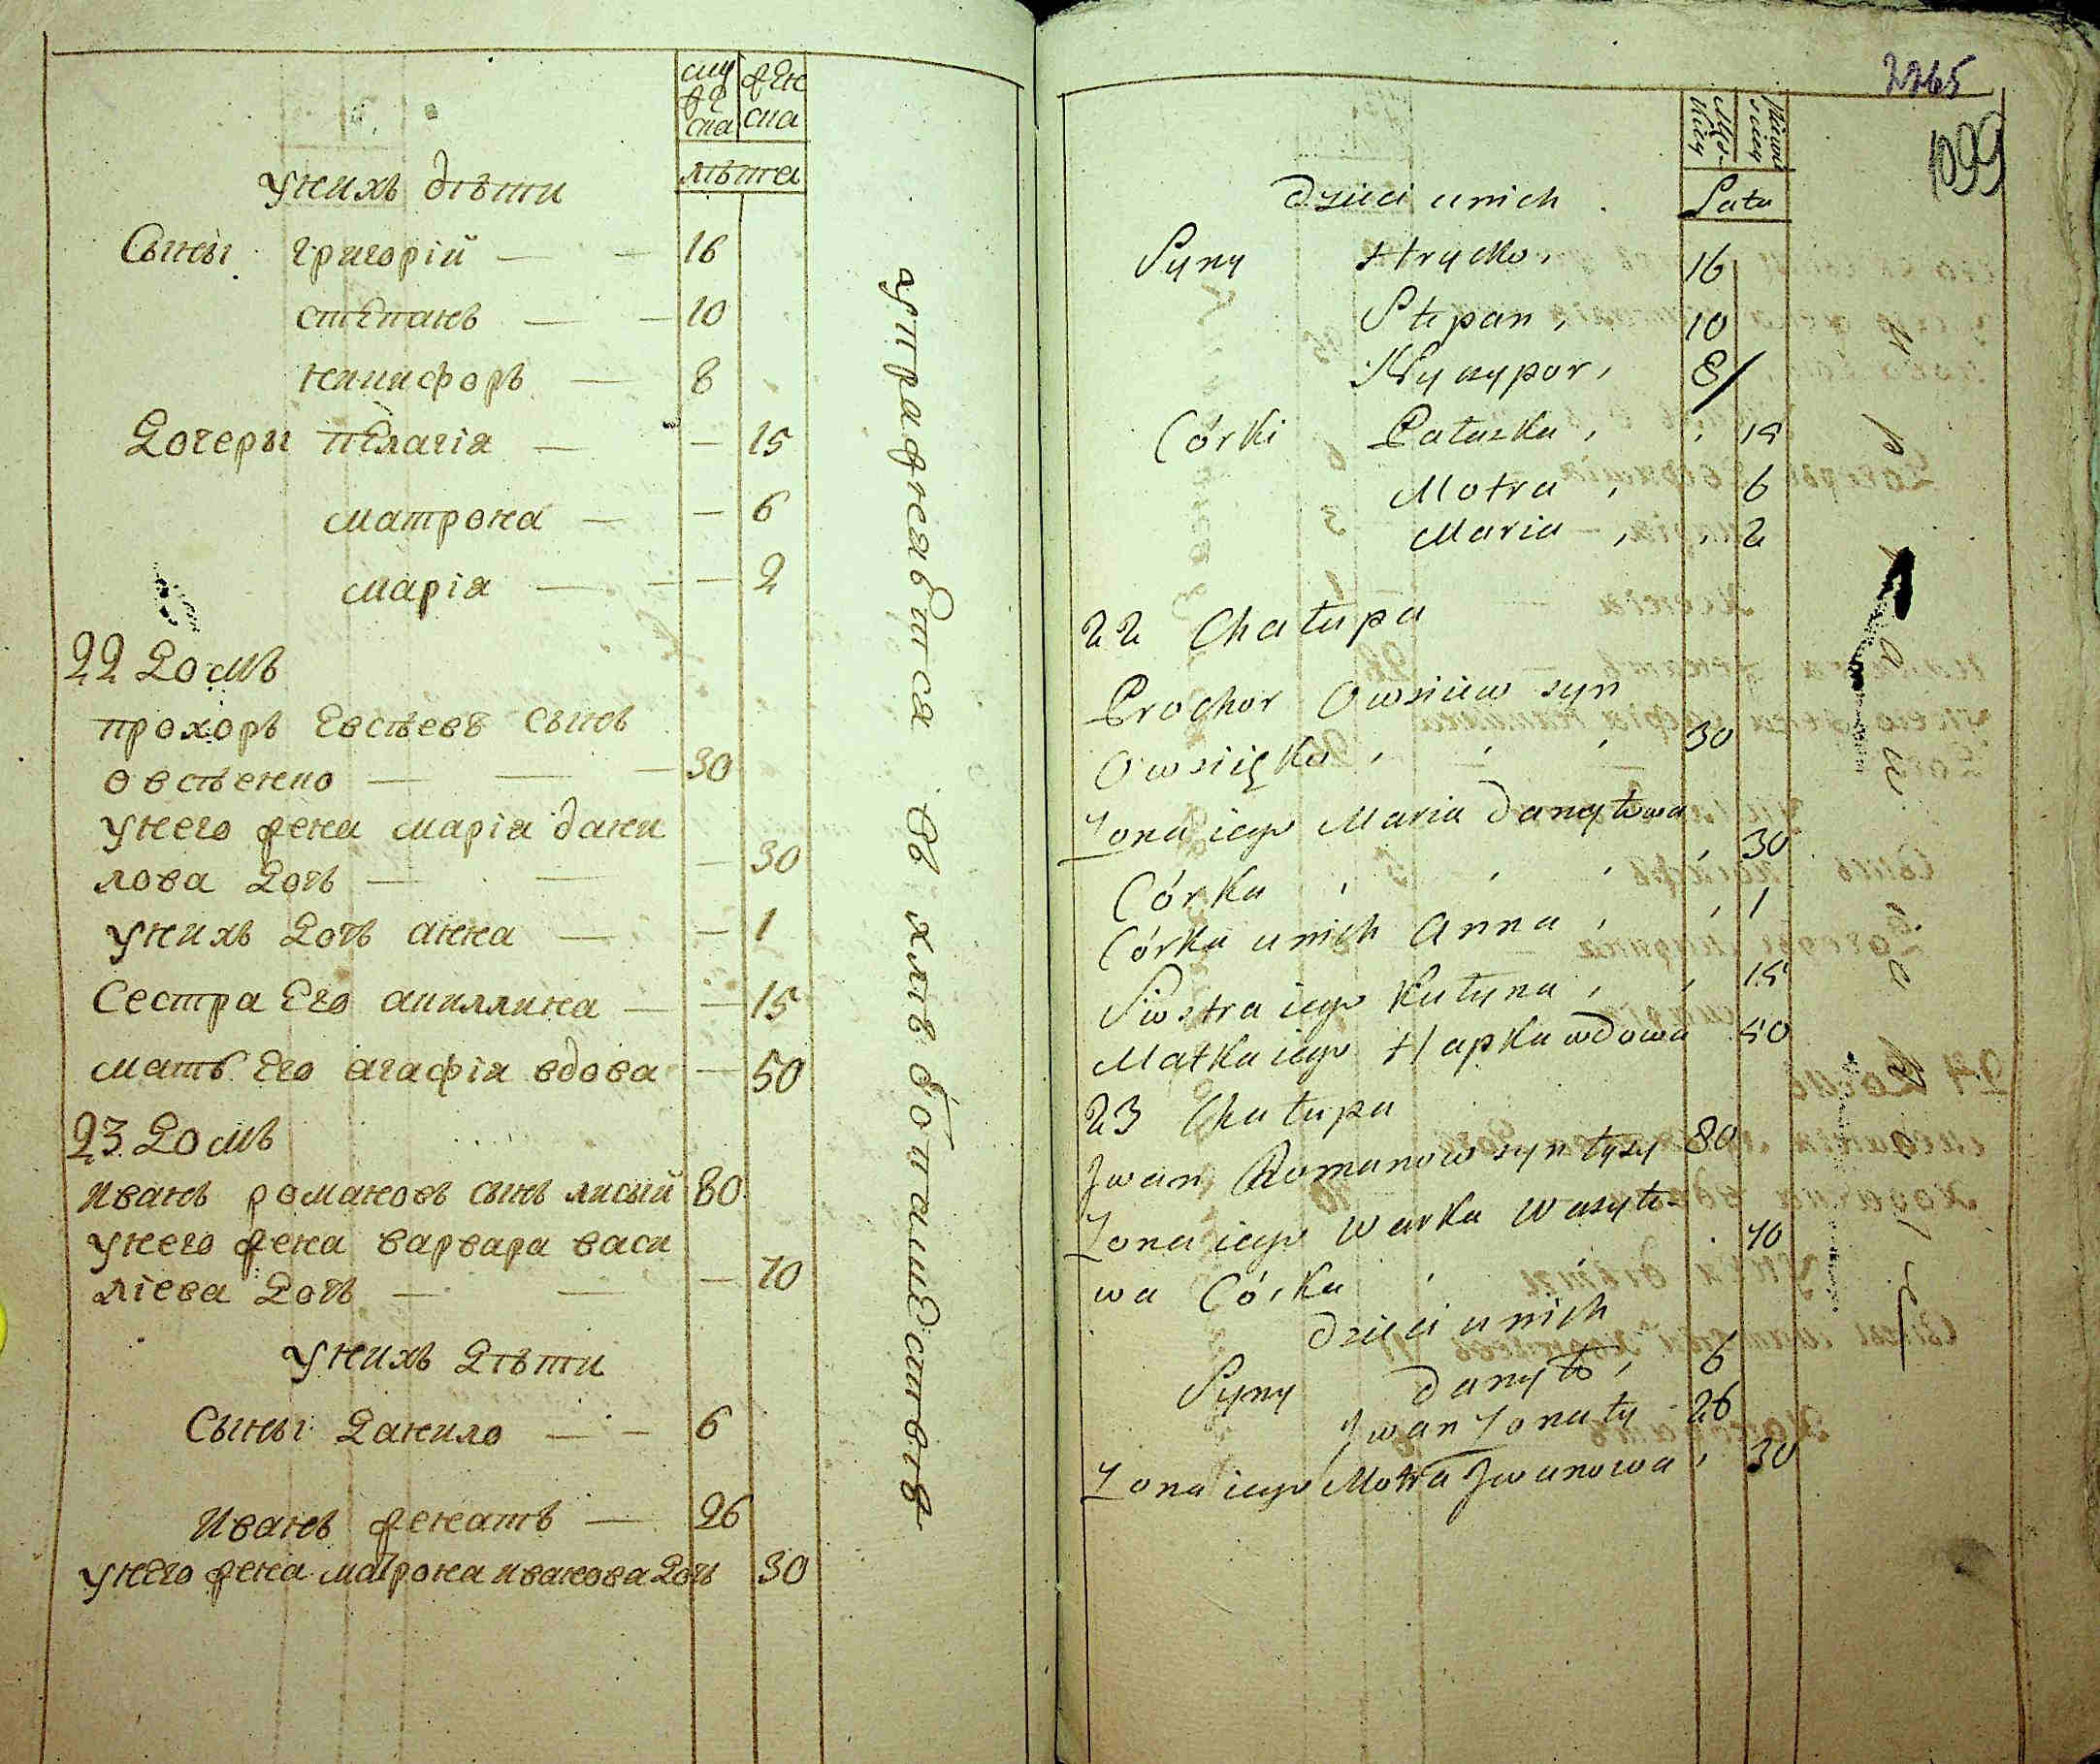 муже
ска
женска
лѣта
у нихъ дѣти
Сыны григорій — — 16
степанъ — — 10
никифоръ — 8
Дочеры пелагія — — 15
матрона — — 6
марія — — — 2
22 Домъ
прохоръ Евсѣевъ сынъ
овсѣенко — — — 30
у него жена марія дани
лова Дочь — — — 30
у нихъ Дочь анна — — 1
Сестра Его акиллина — — 15
мать Его агафія вдова — 50
23 Домъ
иванъ романовъ сынъ лисый 80
у него жена варвара васи
ліева Дочь — — — 70
у нихъ Дѣти
Сыны Данило — — 6
Иванъ женатъ — 26
у него жена матрона иванова Дочь 30
упражняется въ хлѣбопашествѣ
2265
1099
Lata
Dzieci u nich
Syny Hrycko, 16
Stepan, 10
Nyczypor, 8
Córki Pałazka, 15
Motra, 6
Maria, 2
22 Chałupa
Prochor Owsiiew syn
Owsiięko, 30
Żona iego Maria Danyłowa
Córka 30
Córka u nich Anna, 1
Siostra iego Kułyna, 15
Matka iego Hapka wdowa 50
23 Chałupa
Jwan Romanow syn Łysy 80
Żona iego Warka Wasyło-
wa Córka 70
Dzieci u nich
Syny Danyło, 6
Jwan Żonaty 26
Żona iego Motra Jwanowa, 30